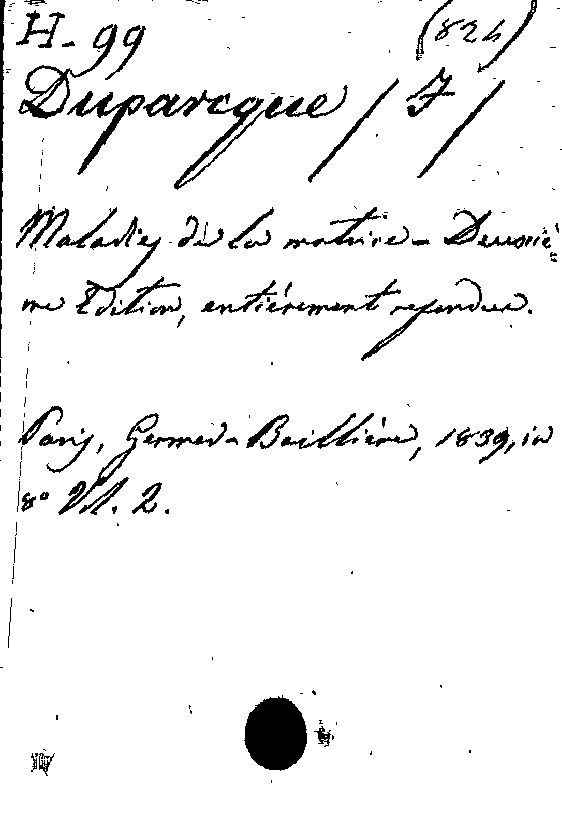 H-99 (824)
Duparcque / F /
Maladies de la matrice - Deuxiè-
me Edition, entiérement refondue.
Paris, Germer-Baillière, 1839, in
8º Vol. 2.